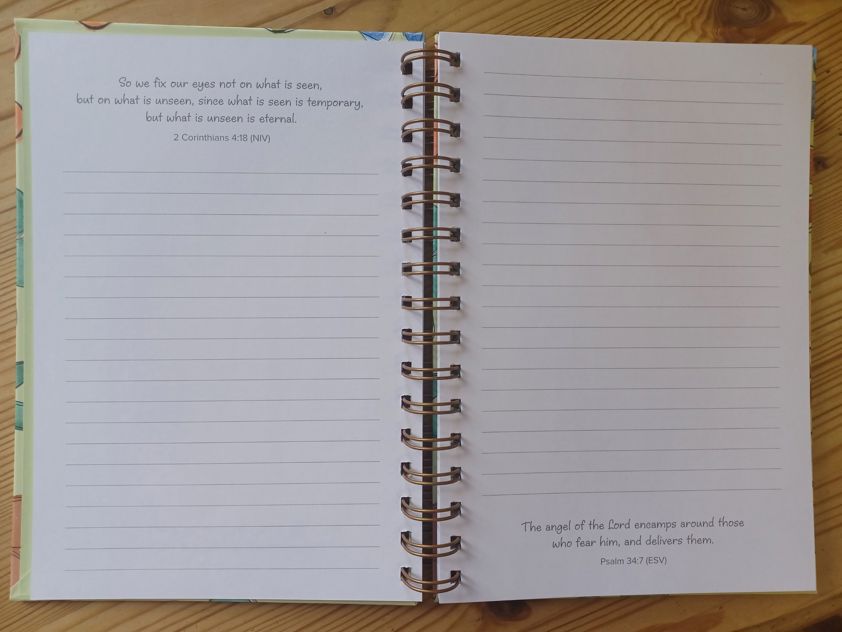 So we fix our eyes not on what is seen,
but on what is unseen, since what is seen is temporary,
but what is unseen is eternal.
2 Corinthians 4:18 (NIV)
The angel of the Lord encamps around those
who fear him, and delivers them.
Psalm 34:7 (ESV)